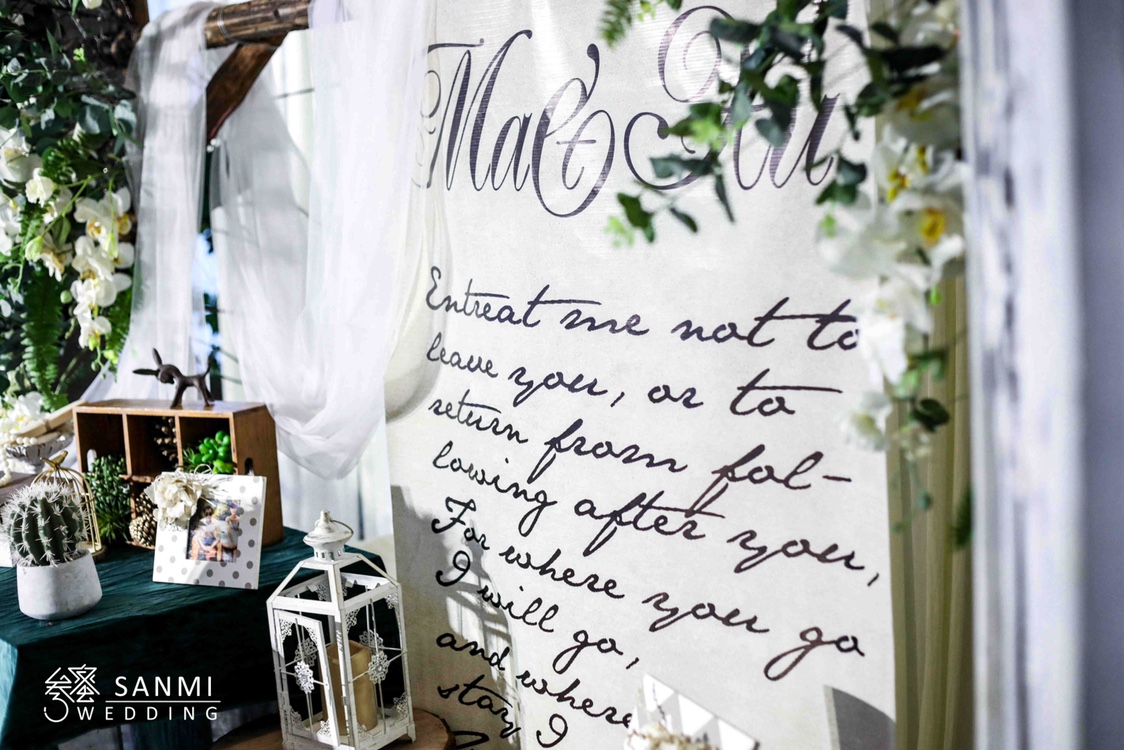 Entreat me not to
leave you, or to
return from fol-
lowing after you,
For where you go
I will go,
and where
stay I
SANMI
WEDDING